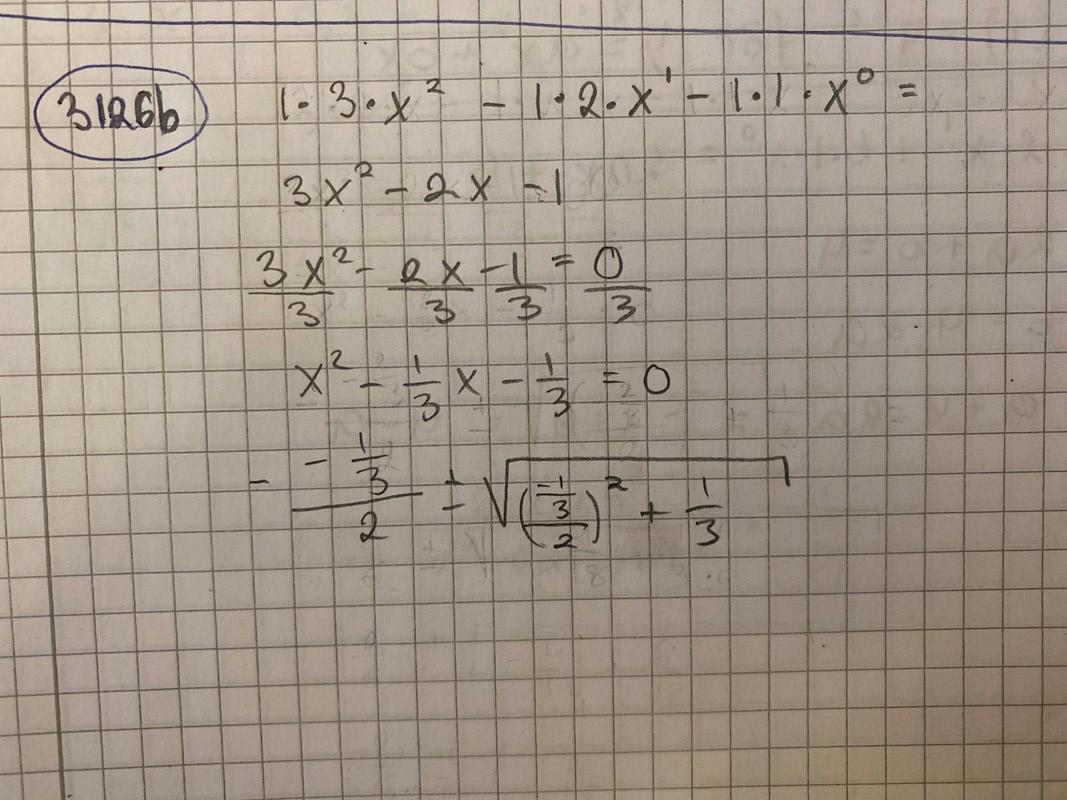 3126b 1·3·x² - 1·2·x¹ - 1·1·x⁰ =
3x² - 2x - 1
3x²/3 - 2x/3 - 1/3 = 0/3
x² - 1/3 x - 1/3 = 0
- (- 1/3)/2 ± √(((-1/3)/2)² + 1/3)